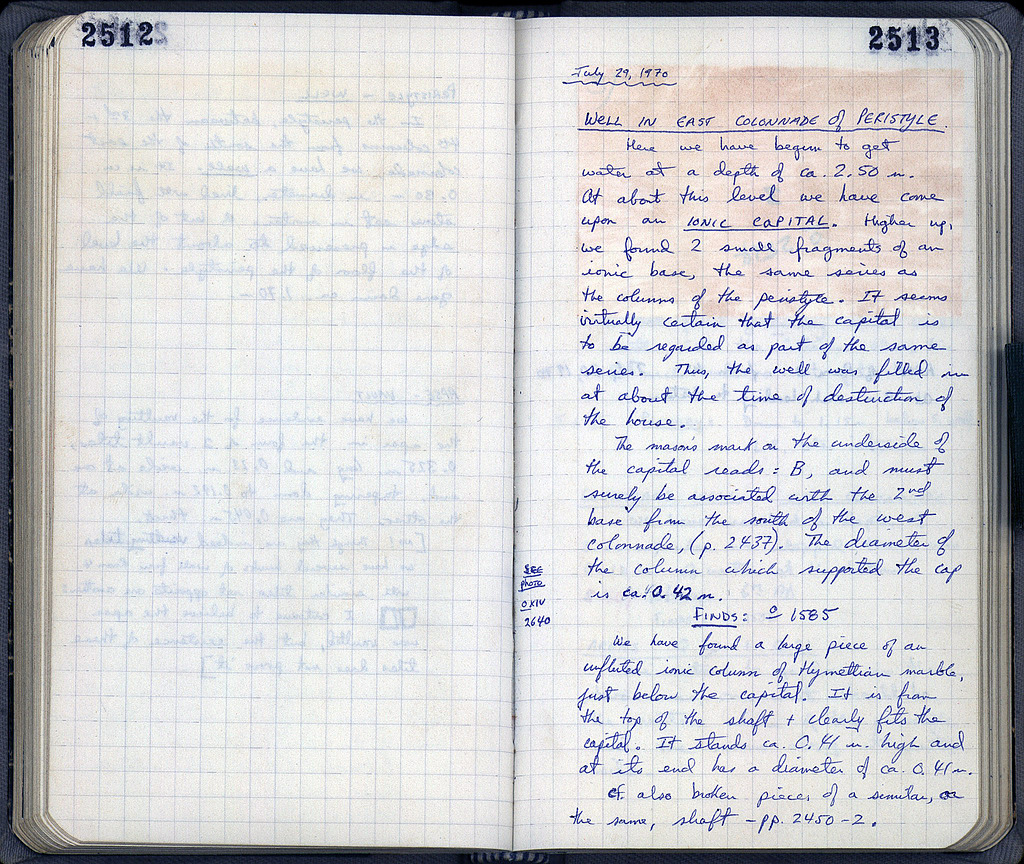 2512
2513
July 29, 1970
WELL IN EAST COLONNADE of PERISTYLE.
Here we have begun to get
water at a depth of ca. 2.50 m.
At about this level we have come
upon an IONIC CAPITAL. Higher up,
we found 2 small fragments of an
ionic base, the same series as
the columns of the peristyle. It seems
virtually certain that the capital is
to be regarded as part of the same
series. Thus, the well was filled in
at about the time of destruction of
the house.
The mason's mark on the underside of
the capital reads: B, and must
surely be associated with the 2nd
base from the south of the west
colonnade, (p. 2437). The diameter of
the column which supported the cap
is ca. 0.42 m.
SEE
PHOTO
OXIV
2640
FINDS: 1585
We have found a large piece of an
unfluted ionic column of Hymettian marble,
just below the capital. It is from
the top of the shaft + clearly fits the
capital. It stands ca. 0.41 m. high and
at its end has a diameter of ca. 0.41 m.
cf. also broken pieces of a similar, or
the same, shaft - pp. 2450-2.